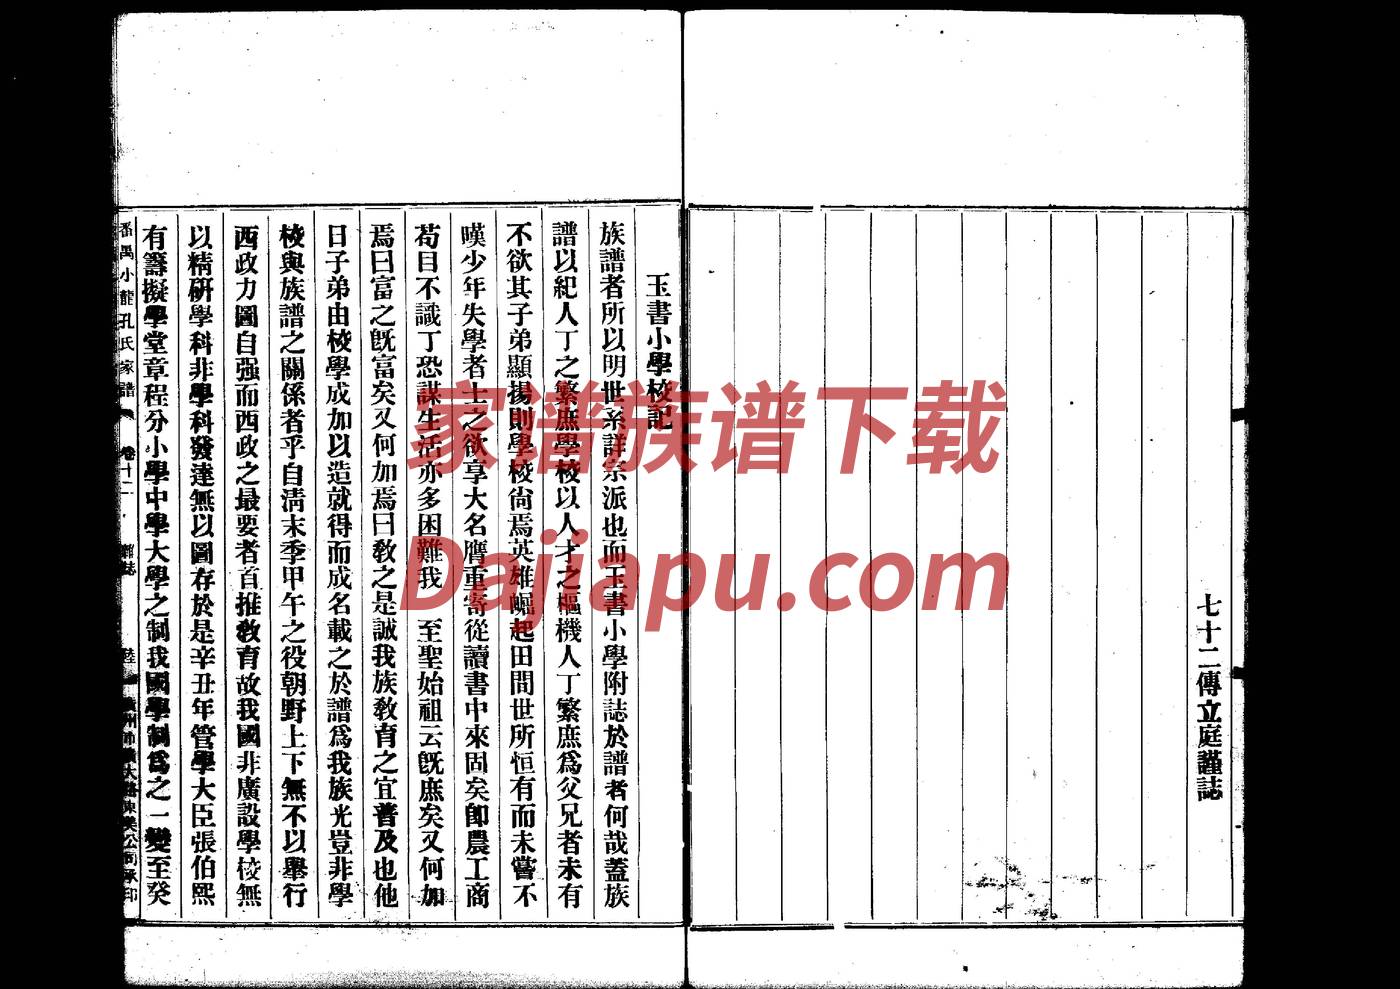 七十二傳立庭謹誌
玉書小學校記
族譜者所以明世系詳宗派也而玉書小學附誌於譜者何哉蓋族
譜以紀人丁之繁庶學校以人才之樞機人丁繁庶為父兄者未有
不欲其子弟顯揚則學校尙焉英雄崛起田間世所恒有而未嘗不
嘆少年失學者士之欲享大名膺重寄從讀書中來固矣卽農工商
苟目不識丁恐謀生活亦多困難我　至聖始祖云旣庶矣又何加
焉曰富之旣富矣又何加焉曰敎之是誠我族敎育之宜普及也他
日子弟由校學成加以造就得而成名載之於譜爲我族光豈非學
校與族譜之關係者乎自淸末季甲午之役朝野上下無不以舉行
西政力圖自强而西政之最要者首推敎育故我國非廣設學校無
以精研學科非學科發達無以圖存於是辛丑年管學大臣張伯熙
有籌擬學堂章程分小學中學大學之制我國學制爲之一變至癸
番禺小龍孔氏家譜　卷十二　雜誌　陸
家谱族谱下载
Dajiapu.com